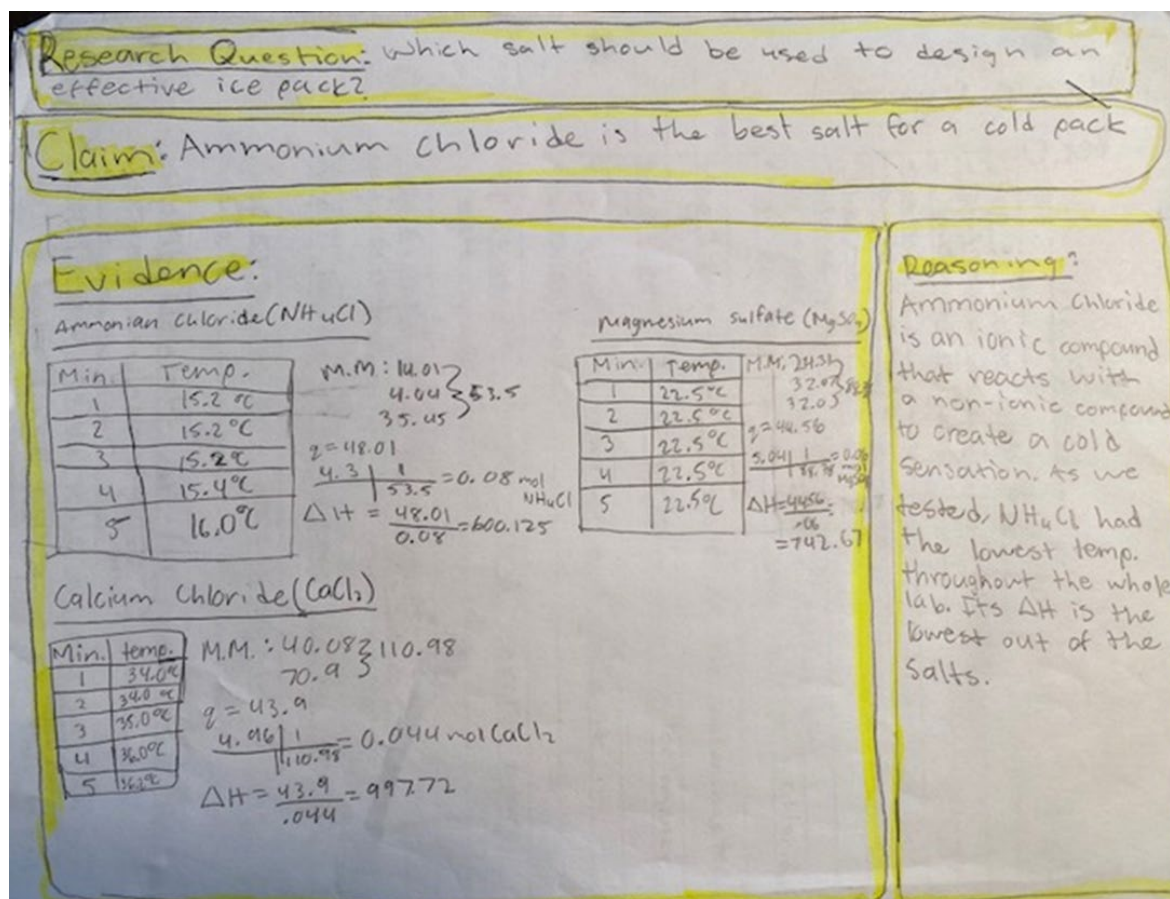 Research Question: Which salt should be used to design an
effective ice pack?
Claim: Ammonium chloride is the best salt for a cold pack
Evidence:
Ammonian chloride (NH4Cl)
Min. Temp.
1 15.2 °C
2 15.2 °C
3 15.2 °C
4 15.4 °C
5 16.0 °C
M.M: 14.01
4.04 53.5
35.45
q = 48.01
4.3 1 = 0.08 mol
53.5 NH4Cl
ΔH = 48.01 = 600.125
0.08
Magnesium sulfate
Min. Temp.
1 22.5 °C
2 22.5 °C
3 22.5 °C
4 22.5 °C
5 22.5 °C
M.M.
q = 44.56
5.04 1
ΔH =
.06
= 742.67
Calcium Chloride (CaCl2)
Min. temp.
1 34.0 °C
2 34.0 °C
3 35.0 °C
4 36.0 °C
5
M.M.: 40.08 110.98
70.9
q = 43.9
4.96 1 = 0.044 mol CaCl2
110.98
ΔH = 43.9 = 997.72
.044
Reasoning:
Ammonium Chloride
is an ionic compound
that reacts with
a non-ionic compound
to create a cold
sensation. As we
tested, NH4Cl had
the lowest temp.
throughout the whole
lab. Its ΔH is the
lowest out of the
salts.